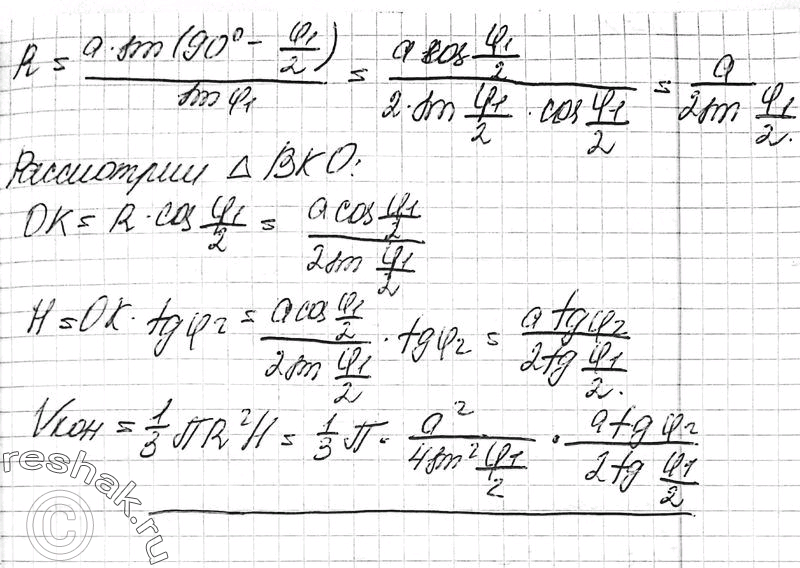 R = a·sin(90° - φ1/2) / sin φ1 = a cos φ1/2 / 2·sin φ1/2 · cos φ1/2 = a / 2sin φ1/2.
Рассмотрим △ BKO:
OK = R·cos φ1/2 = a cos φ1/2 / 2sin φ1/2
H = OK·tgφ2 = a cos φ1/2 / 2sin φ1/2 · tgφ2 = a tgφ2 / 2tg φ1/2.
Vкон = 1/3 ПR²H = 1/3 П · a² / 4sin² φ1/2 · a tgφ2 / 2tg φ1/2
reshak.ru
©